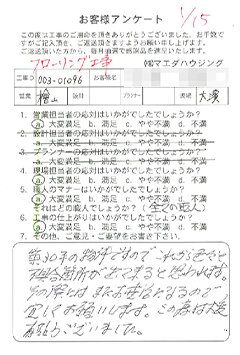 お客様アンケート 1/15
この度は工事のご用命を頂きありがとうございました。お手数で
すがご記入頂き、ご返送頂きますようお願い申し上げます。
ご返送頂いた方から、毎月抽選で感謝品を進呈いたします。
フローリング工事
㈱マエダハウジング
工事コード 003-01096 お客様名
営業 檜山 設計 プランナー 現場 大濱
1. 営業担当者の応対はいかがでしたでしょうか?
ⓐ大変満足 b. 満足 c. やや不満 d. 不満
2. 設計担当者の応対はいかがでしたでしょうか?
a. 大変満足 b. 満足 c. やや不満 d. 不満
3. プランナーの応対はいかがでしたでしょうか?
a. 大変満足 b. 満足 c. やや不満 d. 不満
4. 現場担当者の応対はいかがでしたでしょうか?
ⓐ大変満足 b. 満足 c. やや不満 d. 不満
5. 職人のマナーはいかがでしたでしょうか?
ⓐ大変満足 b. 満足 c. やや不満 d. 不満
それはどの職人でしょうか?
6. 工事の仕上がりはいかがでしたでしょうか?
ⓐ大変満足 b. 満足 c. やや不満 d. 不満
7. その他、ご意見・ご要望をお書き下さい。
築30年の物件ですのでこれから色々と
不具合箇所が出てくると思われます。
その際にはまたお世話になるので
宜しくお願いします。この度は大変
有難うございました。